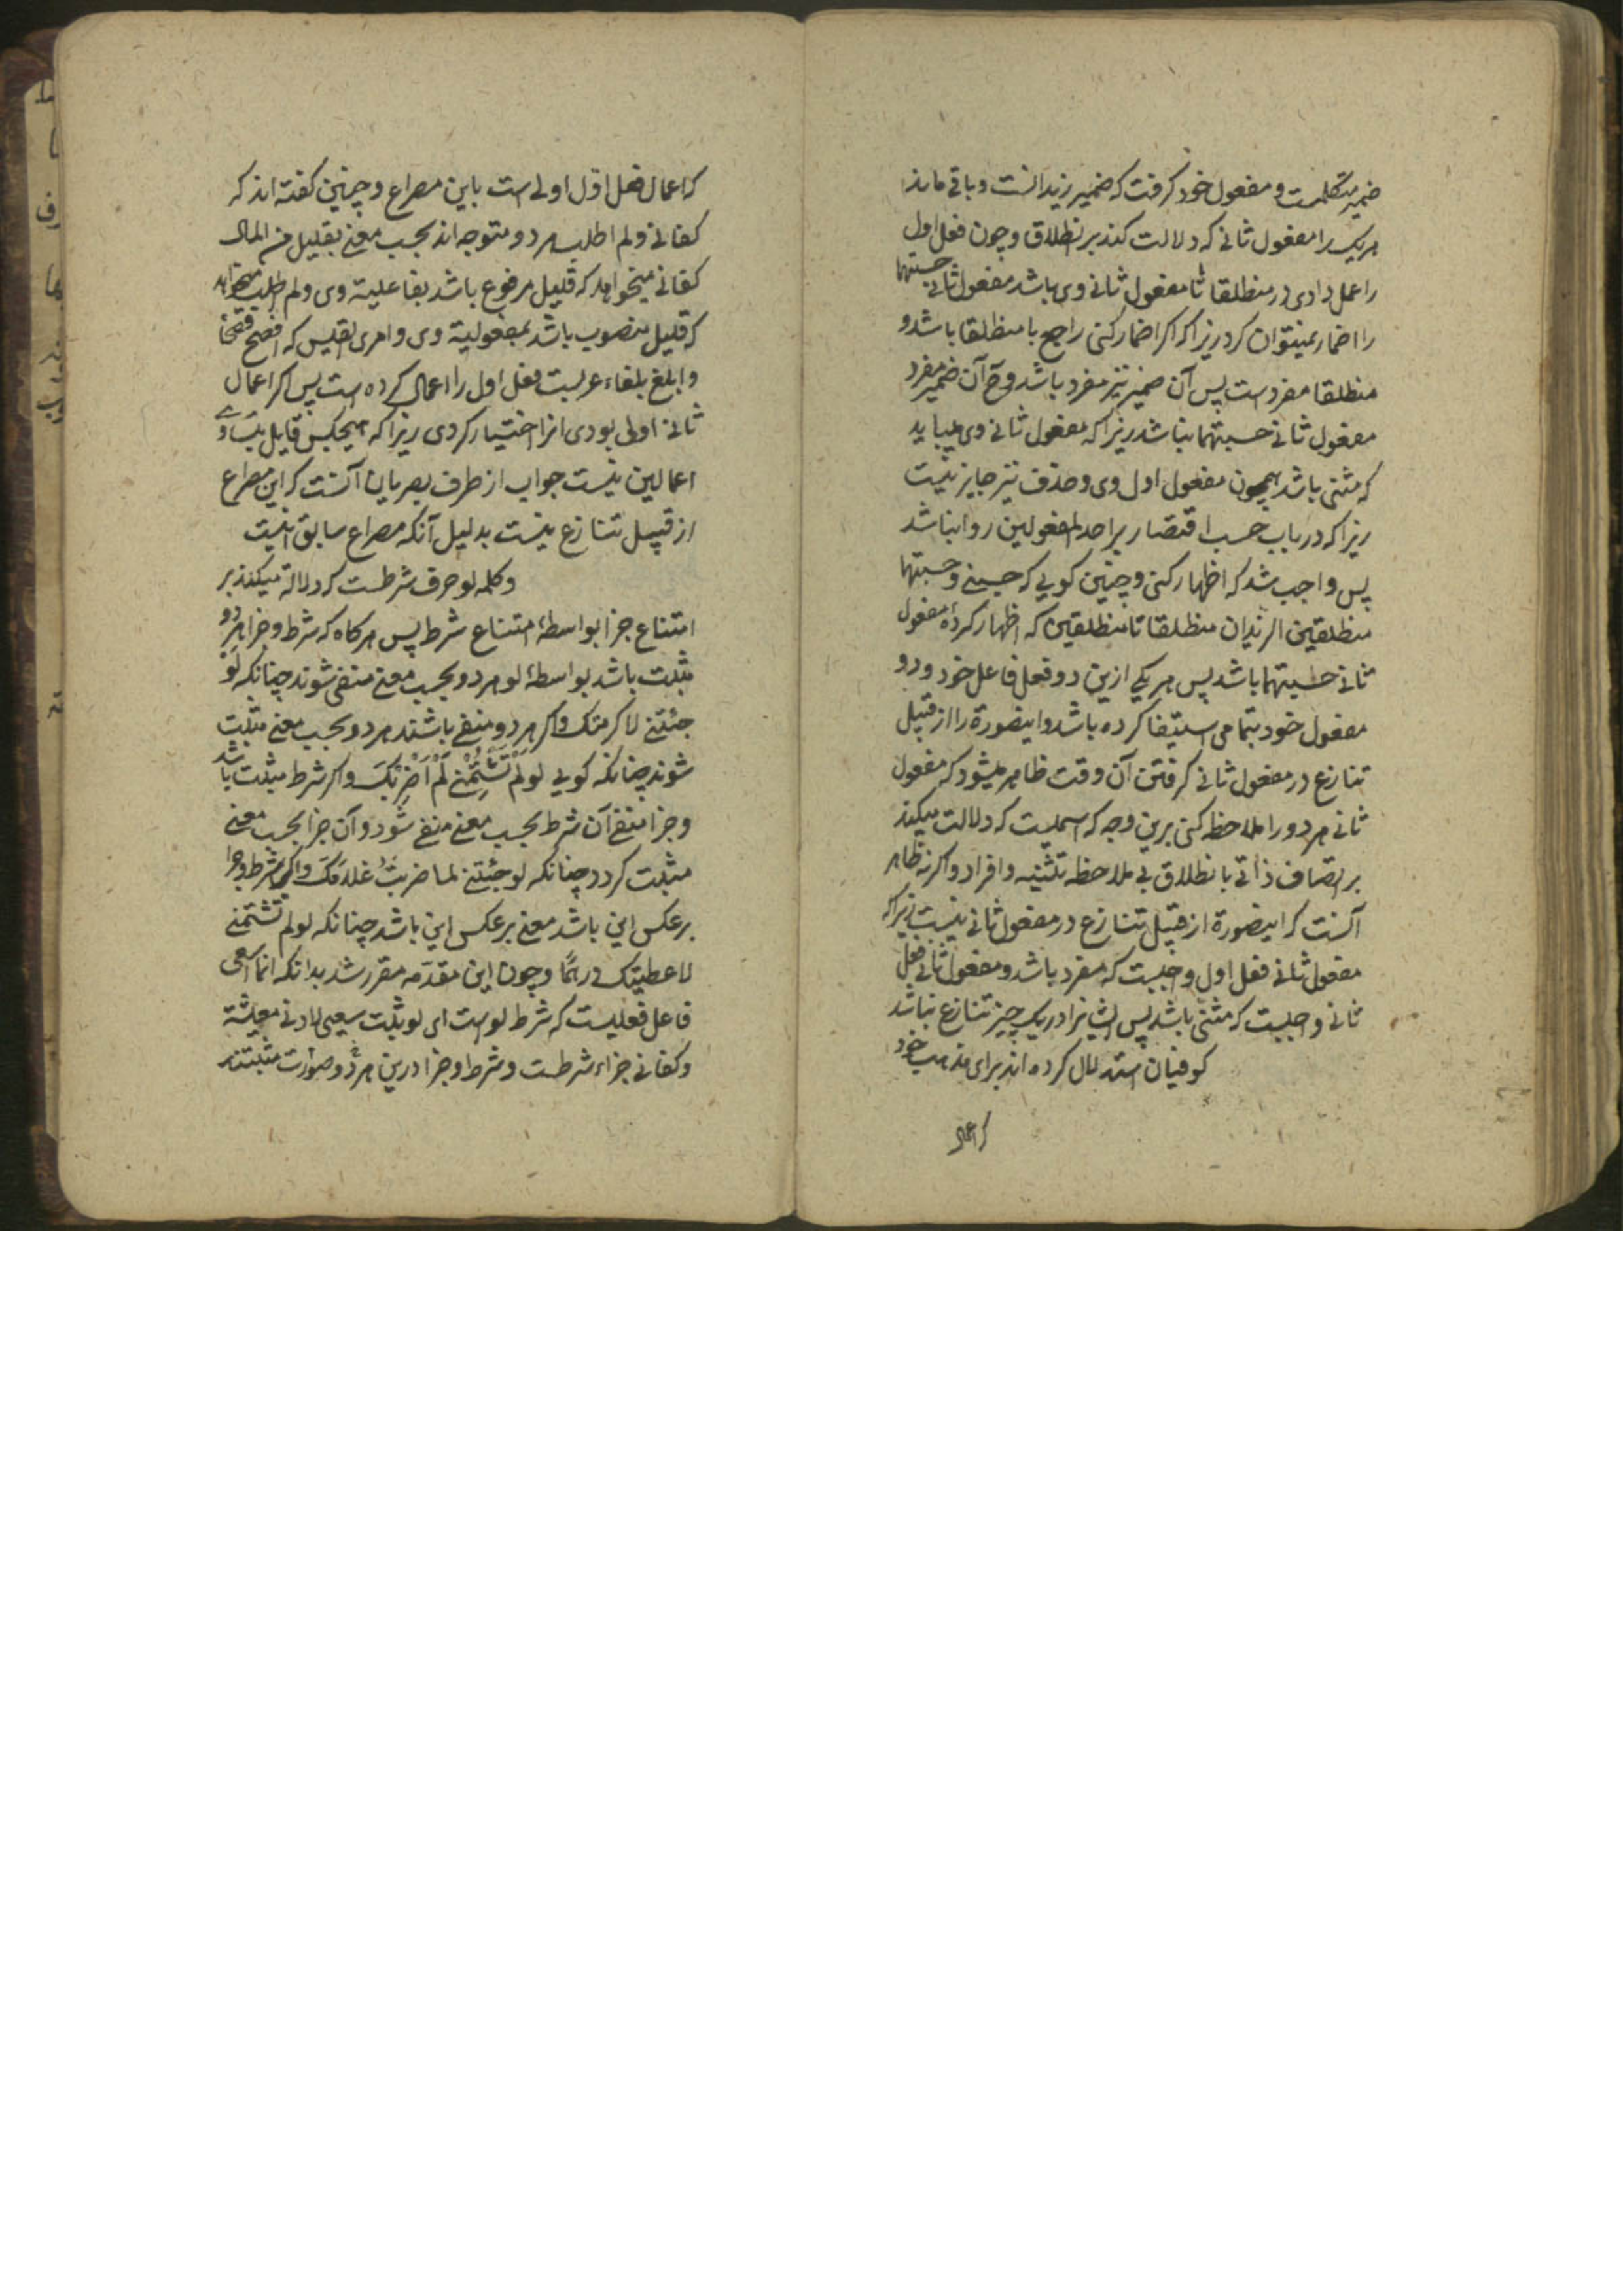 ضمیر متکلمست و مفعول خود گرفت که ضمیر زیدانست و باقی ماند
هریک را مفعول ثانی که دلالت کند بر انطلاق و چون فعل اول
را عمل دادی در منطلقا تا مفعول ثانی وی باشد مفعول ثانی حسبتهما
را اضمار نمیتوان کرد زیرا که اگر اضمار کنی راجع با منطلقا باشد و
منطلقا مفردست پس آن ضمیر نیز مفرد باشد وح آن ضمیر مفرد
مفعول ثانی حسبتهما نباشد زیرا که مفعول ثانی وی میباید
که مثنی باشد همچون مفعول اول وی و حذف نیز جایز نیست
زیرا که در باب حسب اقتصار بر احد المفعولین روا نباشد
پس واجب شد که اظهار کنی و چنین گویی که حسبنی و حسبتهما
منطلقین الزیدان منطلقا تا منطلقین که اظهار کرده مفعول
ثانی حسبتهما باشد پس هریکی ازین دو فعل فاعل خود و دو
مفعول خود بتمامی استیفا کرده باشد و اینصورة را از قبیل
تنازع در مفعول ثانی گرفتن آن وقت ظاهر میشود که مفعول
ثانی هر دو را ملاحظه کنی برین وجه که اسمیست که دلالت میکند
بر اتصاف ذاتی بانطلاق بی ملاحظه تثنیه و افراد و اگرنه ظاهر
آنست که اینصورة از قبیل تنازع در مفعول ثانی نیست زیرا که
مفعول ثانی فعل اول واجبست که مفرد باشد و مفعول ثانی فعل
ثانی واجبست که مثنی باشد پس ایشانرا در یک چیز تنازع نباشد
کوفیان استدلال کرده اند برای مذهب خود
که اعمال
که اعمال فعل اول اولی است باین مصراع و چنین گفته اند که
کفانی و لم اطلب هر دو متوجه اند بحسب معنی بقلیل من المال
کفانی میخواهد که قلیل مرفوع باشد بفاعلیة وی و لم اطلب میخواهد
که قلیل منصوب باشد بمفعولیة وی و امرئ القیس که افصح فصحا
و ابلغ بلغاء عربست فعل اول را اعمال کرده است پس اگر اعمال
ثانی اولی بودی انرا اختیار کردی زیرا که هیچکس قایل بتساوی
اعمالین نیست جواب از طرف بصریان آنست که این مصراع
از قبیل تنازع نیست بدلیل آنکه مصراع سابق اینست
و کلمه لو حرف شرطست که دلالة میکند بر
امتناع جزا بواسطهٔ امتناع شرط پس هرگاه که شرط و جزا هر دو
مثبت باشد بواسطهٔ لو هر دو بحسب معنی منتفی شوند چنانکه لَوْ
جئتنی لاکرمتک و اگر هر دو منفی باشند هر دو بحسب معنی مثبت
شوند چنانکه گویی لو لَمْ تَشْتِمْنی لَمْ اَضْرِبْکَ و اگر شرط مثبت باشد
و جزا منفی آن شرط بحسب معنی منفی شود و آن جزا بحسب معنی
مثبت گردد چنانکه لو جئتنی لما ضربتُ غلامَکَ و اگر شرط و جزا
برعکس این باشد معنی برعکس این باشد چنانکه لو لم تشتمنی
لاعطیتک درهمًا و چون این مقدّمه مقرر شد بدانکه انما اسعی
فاعل فعلیست که شرط لو است ای لو ثبت سعیی لادنی معیشة
و کفانی جزاء شرطست و شرط و جزا درین هر دو صورت مثبتند